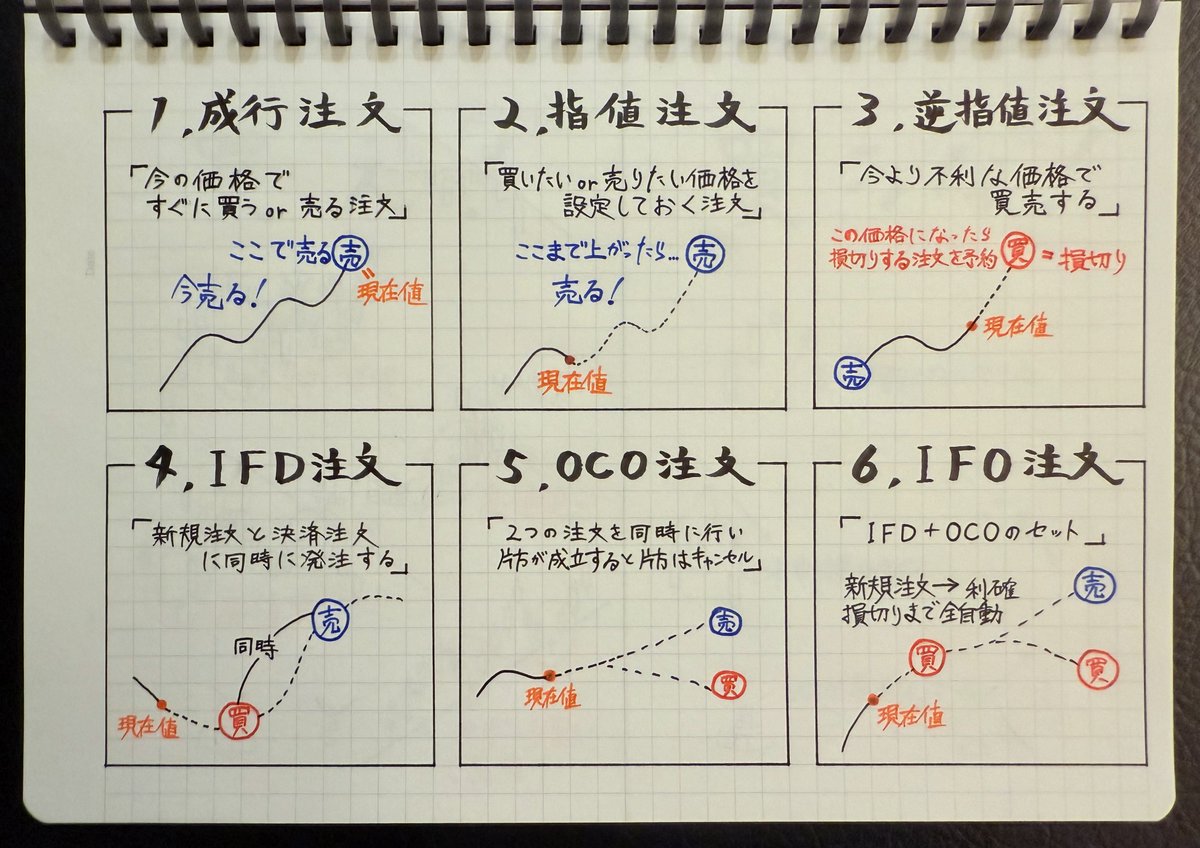 1,成行注文
「今の価格で
すぐに買うor売る注文」
ここで売る 売
今売る!
現在値
2,指値注文
「買いたいor売りたい価格を
設定しておく注文」
ここまで上がったら… 売
売る!
現在値
3,逆指値注文
「今より不利な価格で
買売する」
この価格になったら
損切りする注文を予約 買 =損切り
現在値
売
4,IFD注文
「新規注文と決済注文
に同時に発注する」
売
同時
現在値 買
5,OCO注文
「2つの注文を同時に行い
片方が成立すると片方はキャンセル」
売
現在値 買
6,IFO注文
「IFD+OCOのセット」
新規注文→利確 売
損切りまで全自動
買 買
現在値